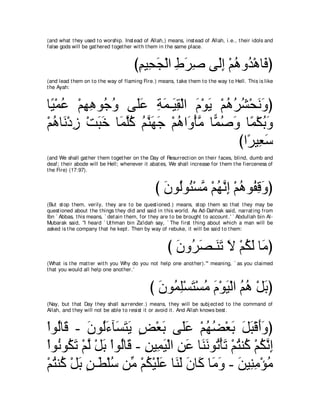 (and what they used to worship. Instead of Allah,) means, instead of Allah, i.e., their idols and
false gods will be gathered together with them in the same place.
(فَاهْدُوهُمْ إِلَى صِرَطِ الْجَحِيمِ)
(and lead them on to the way of flaming Fire.) means, take them to the way to Hell. This is like
the Ayah:
(وَنَحْشُرُهُمْ يَوْمَ الْقِيَـمَةِ عَلَى وُجُوهِهِمْ عُمْيًا
وَبُكْمًا وَصُمًّا مَّأْوَاهُمْ جَهَنَّمُ كُلَّمَا خَبَتْ زِدْنَاهُمْ
سَعِيرًا)
(and We shall gather them together on the Day of Resurrection on their faces, blind, dumb and
deaf; their abode will be Hell; whenever it abates, We shall increase for them the fierceness of
the Fire) (17:97).
(وَقِفُوهُمْ إِنَّهُمْ مَّسْئُولُونَ )
(But stop them, verily, they are to be questioned.) means, stop them so that they may be
questioned about the things they did and said in this world. As Ad-Dahhak said, narrating from
Ibn `Abbas, this means, `detain them, for they are to be brought to account.' `Abdullah bin Al-
Mubarak said, "I heard `Uthman bin Za'idah say, `The first thing about which a man will be
asked is the company that he kept. Then by way of rebuke, it will be said to them:
(مَا لَكُمْ لاَ تَنَـصَرُونَ )
(What is the matter with you Why do you not help one another).''' meaning, `as you claimed
that you would all help one another.'
(بَلْ هُمُ الْيَوْمَ مُسْتَسْلِمُونَ )
(Nay, but that Day they shall surrender.) means, they will be subjected to the command of
Allah, and they will not be able to resist it or avoid it. And Allah knows best.
(وَأَقْبَلَ بَعْضُهُمْ عَلَى بَعْضٍ يَتَسَآءَلُونَ - قَالُواْ
إِنَّكُمْ كُنتُمْ تَأْتُونَنَا عَنِ الْيَمِينِ - قَالُواْ بَلْ لَّمْ تَكُونُواْ
مُؤْمِنِينَ - وَمَا كَانَ لَنَا عَلَيْكُمْ مِّن سُلْطَـنٍ بَلْ كُنتُمْ